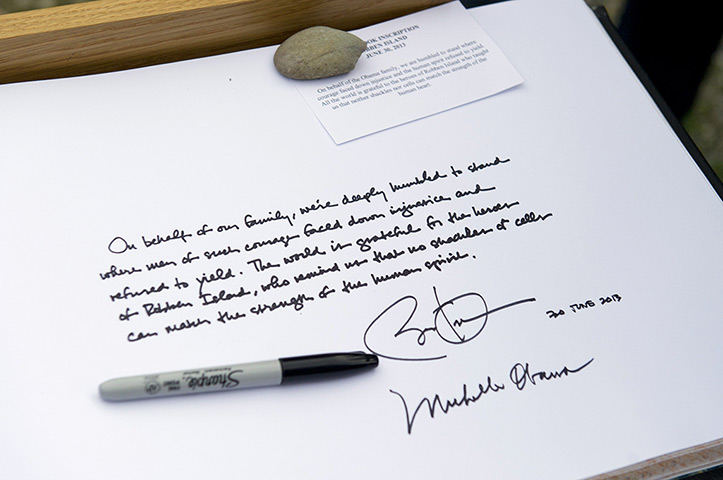 OOK INSCRIPTION
BBEN ISLAND
JUNE 30, 2013
On behalf of the Obama family, we are humbled to stand where
courage faced down injustice and the human spirit refused to yield.
All the world is grateful to the heroes of Robben Island who taught
us that neither shackles nor cells can match the strength of the
human heart.
On behalf of our family, we're deeply humbled to stand
where men of such courage faced down injustice and
refused to yield. The world is grateful for the heroes
of Robben Island, who remind us that no shackles or cells
can match the strength of the human spirit.
30 JUNE 2013
Michelle Obama
Sharpie